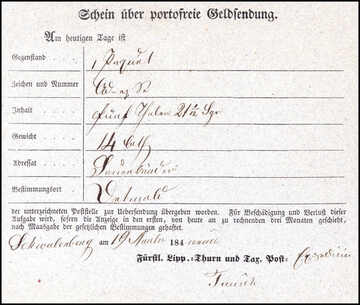 Schein über portofreie Geldsendung.
Am heutigen Tage ist
Gegenstand 1 Paquet
Zeichen und Nummer
Inhalt fünf Thaler 21½ Sgr
Gewicht 14 Loth
Adressat
Bestimmungsort Detmold
der unterzeichneten Poststelle zur Uebersendung übergeben worden. Für Beschädigung und Verlust dieser
Aufgabe wird, sofern die Anzeige in den ersten, von heute an zu rechnenden drei Monaten geschieht,
nach Maaßgabe der gesetzlichen Bestimmungen gehaftet.
Schwalenberg am 19 184
Fürstl. Lipp. Thurn und Tax. Post-